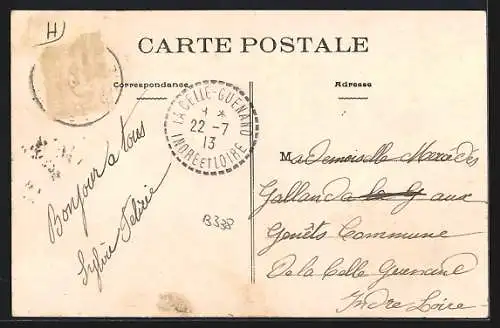 H
CARTE POSTALE
Correspondance
Adresse
LA CELLE-GUENAND
1 *
22 -7
13
INDRE ET LOIRE
Bonjour a tous
Sylvie Félizie
B338
Mademoiselle Mercedès
Galland a la G aux
Genêts Commune
De la Celle Guenand
Indre Loire